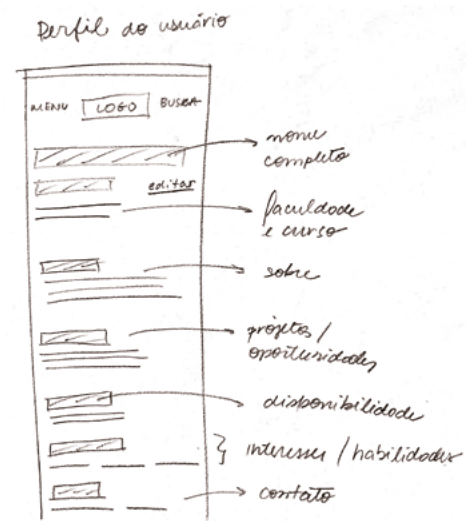 Perfil do usuário
MENU LOGO BUSCA
nome
completo
editar
faculdade
e curso
sobre
projetos /
oportunidades
disponibilidade
interesses / habilidades
contato